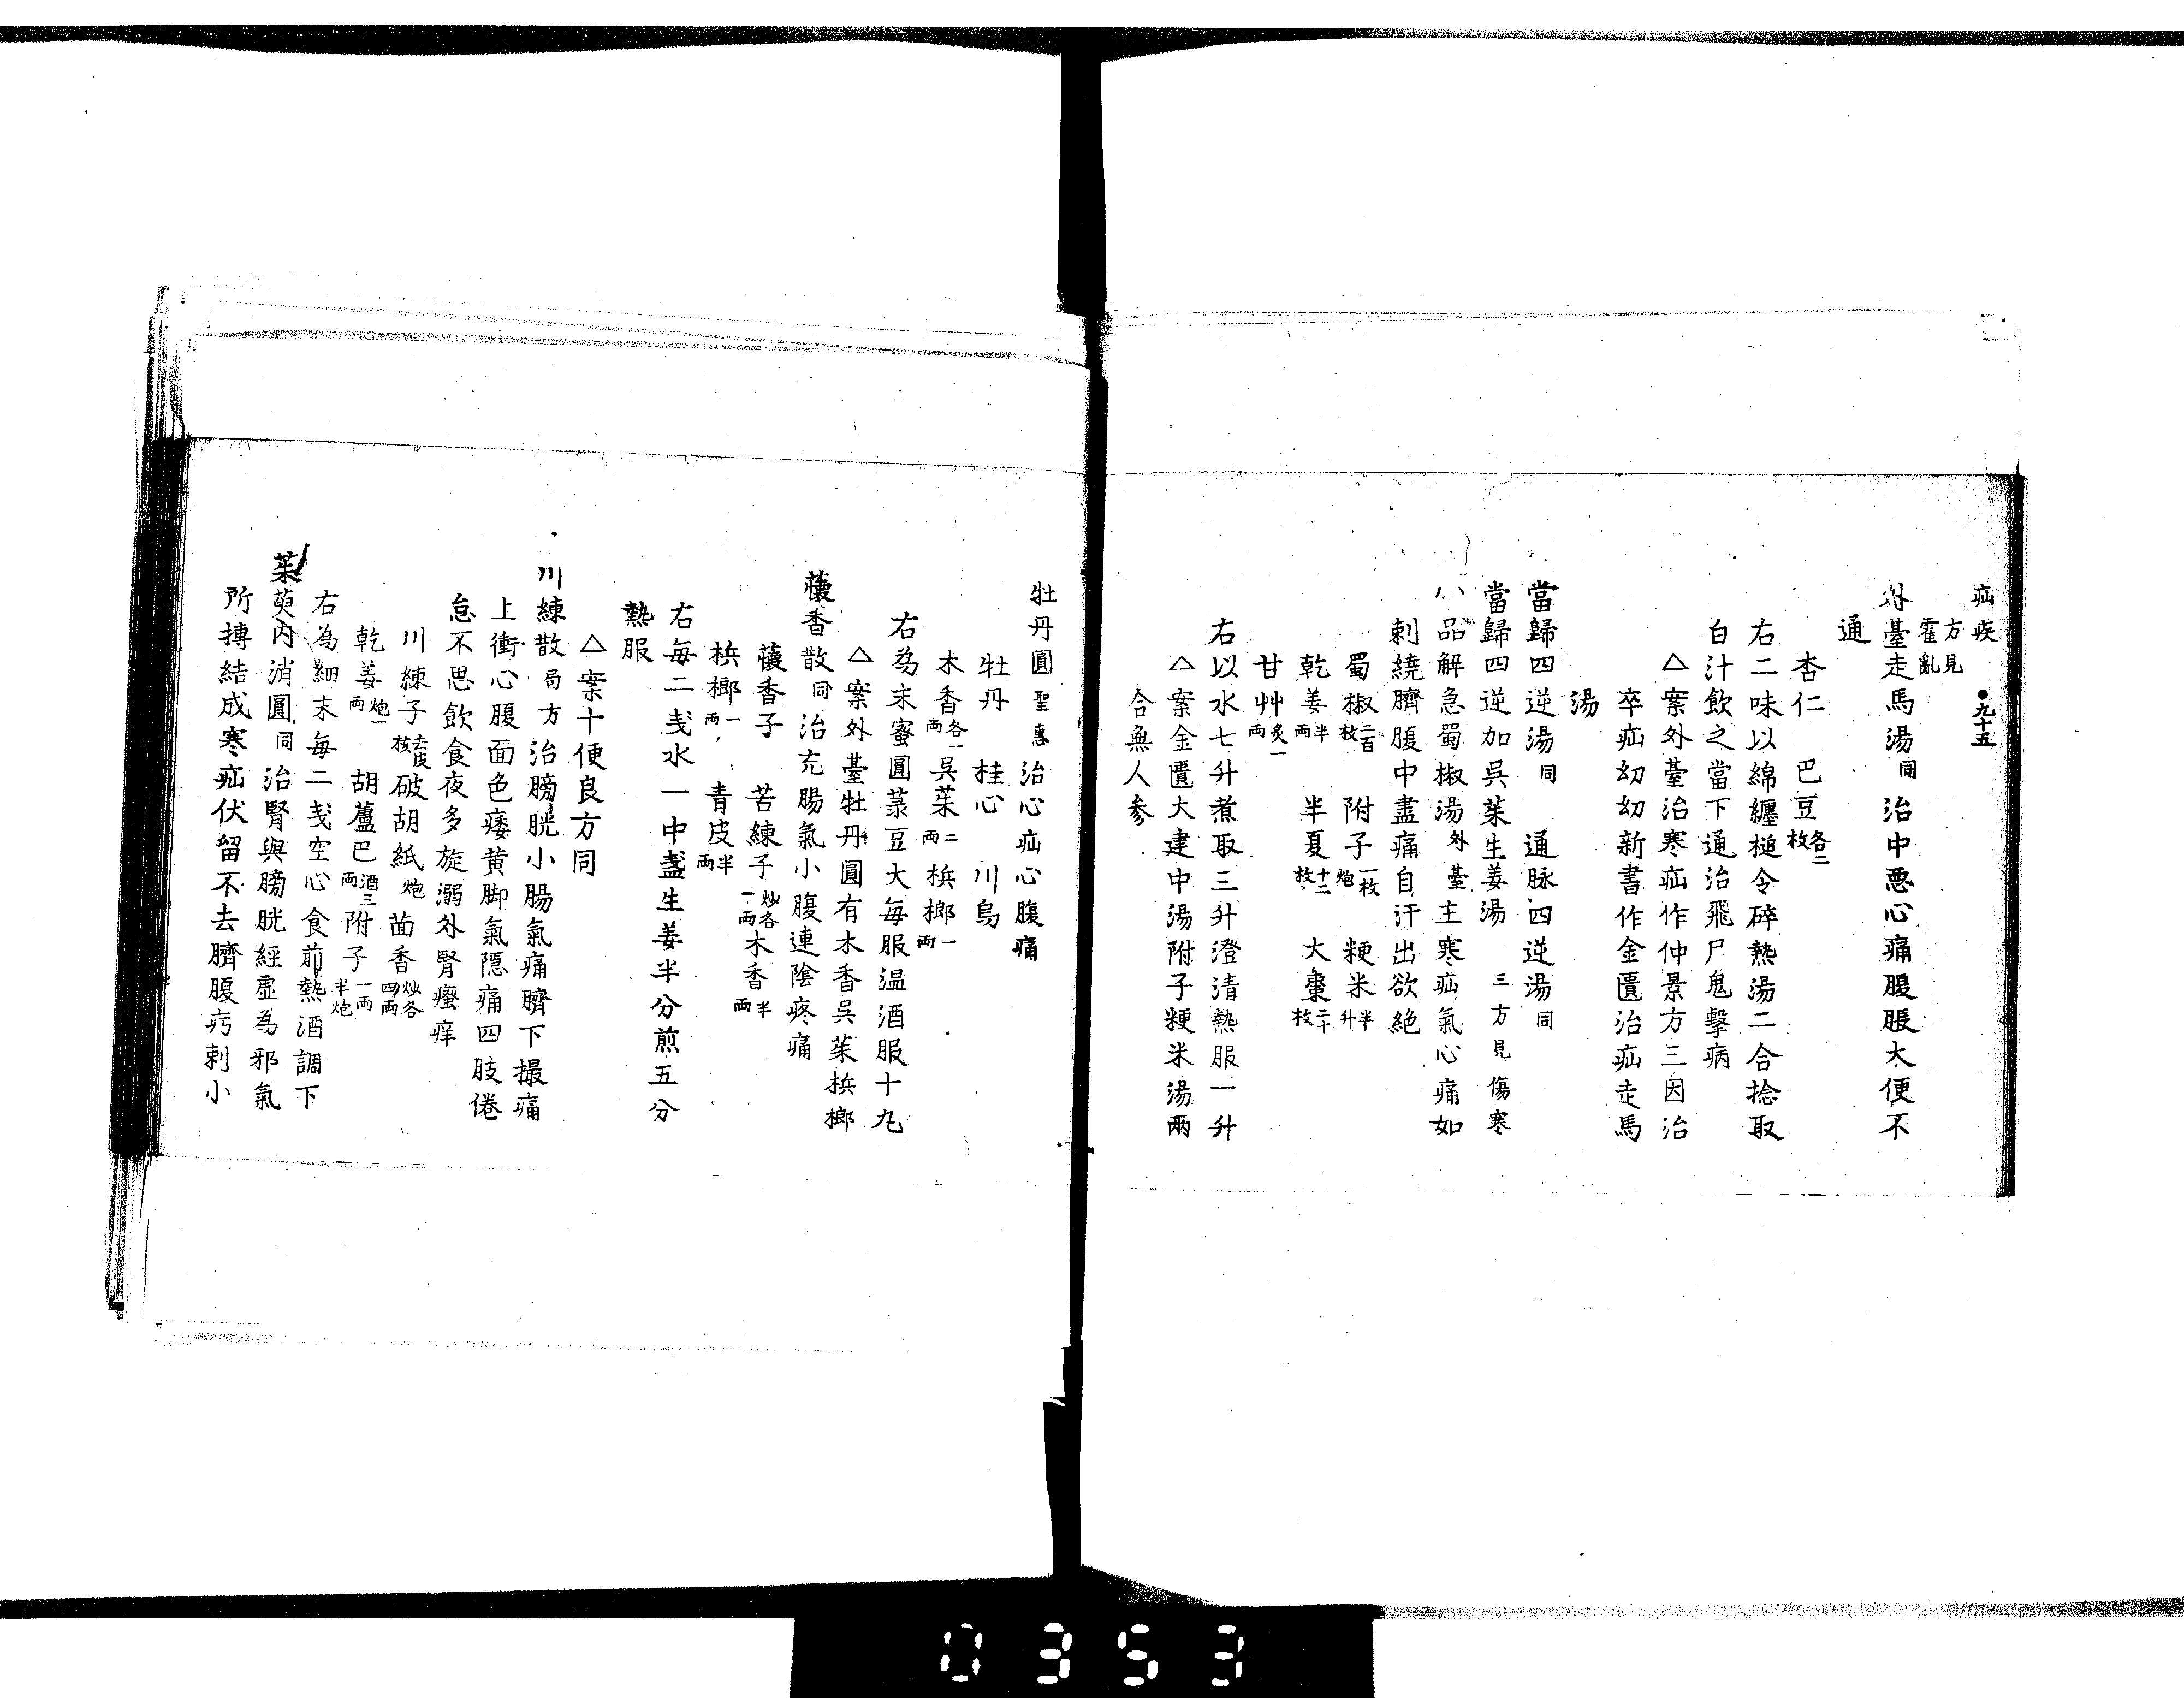 疝疾　●九十五
方見
霍亂
外臺走馬湯同　治中悪心痛腹脹大便不
通
杏仁　巴豆各二枚
右二味以綿纏槌令碎熱湯二合捻取
白汁飲之當下通治飛尸鬼擊病
△案外臺治寒疝作仲景方三因治
卒疝幼幼新書作金匱治疝走馬
湯
當歸四逆湯同　通脉四逆湯同
當歸四逆加呉茱生姜湯　三方見傷寒
八品解急蜀椒湯外臺主寒疝氣心痛如
刺繞臍腹中盡痛自汗出欲絶
蜀椒二百枚　附子一枚炮　粳米半升
乾姜半両　半夏十二枚　大棗二十枚
甘艸炙一両
右以水七升煮取三升澄清熱服一升
△案金匱大建中湯附子粳米湯兩
合無人参
牡丹圓聖惠治心疝心腹痛
牡丹　桂心　川烏
木香各一両　呉茱二両　梹榔一両
右為末蜜圓菉豆大毎服温酒服十九
△案外臺牡丹圓有木香呉茱梹榔
蘹香散同治充腸氣小腹連陰疼痛
蘹香子　苦練子炒各一両　木香半両
梹榔一両　青皮半両
右毎二戔水一中盞生姜半分煎五分
熱服
△案十便良方同
川練散局方治膀胱小腸氣痛臍下撮痛
上衝心腹面色痿黄脚氣隠痛四肢倦
怠不思飲食夜多旋溺外腎瘙痒
川練子去皮核　破胡紙炮　茴香炒各四両
乾姜炮一両　胡蘆巴酒三両　附子一両半炮
右為細末毎二戔空心食前熱酒調下
茱萸内消圓同治腎與膀胱經虚為邪氣
所搏結成寒疝伏留不去臍腹㽲刺小
0353